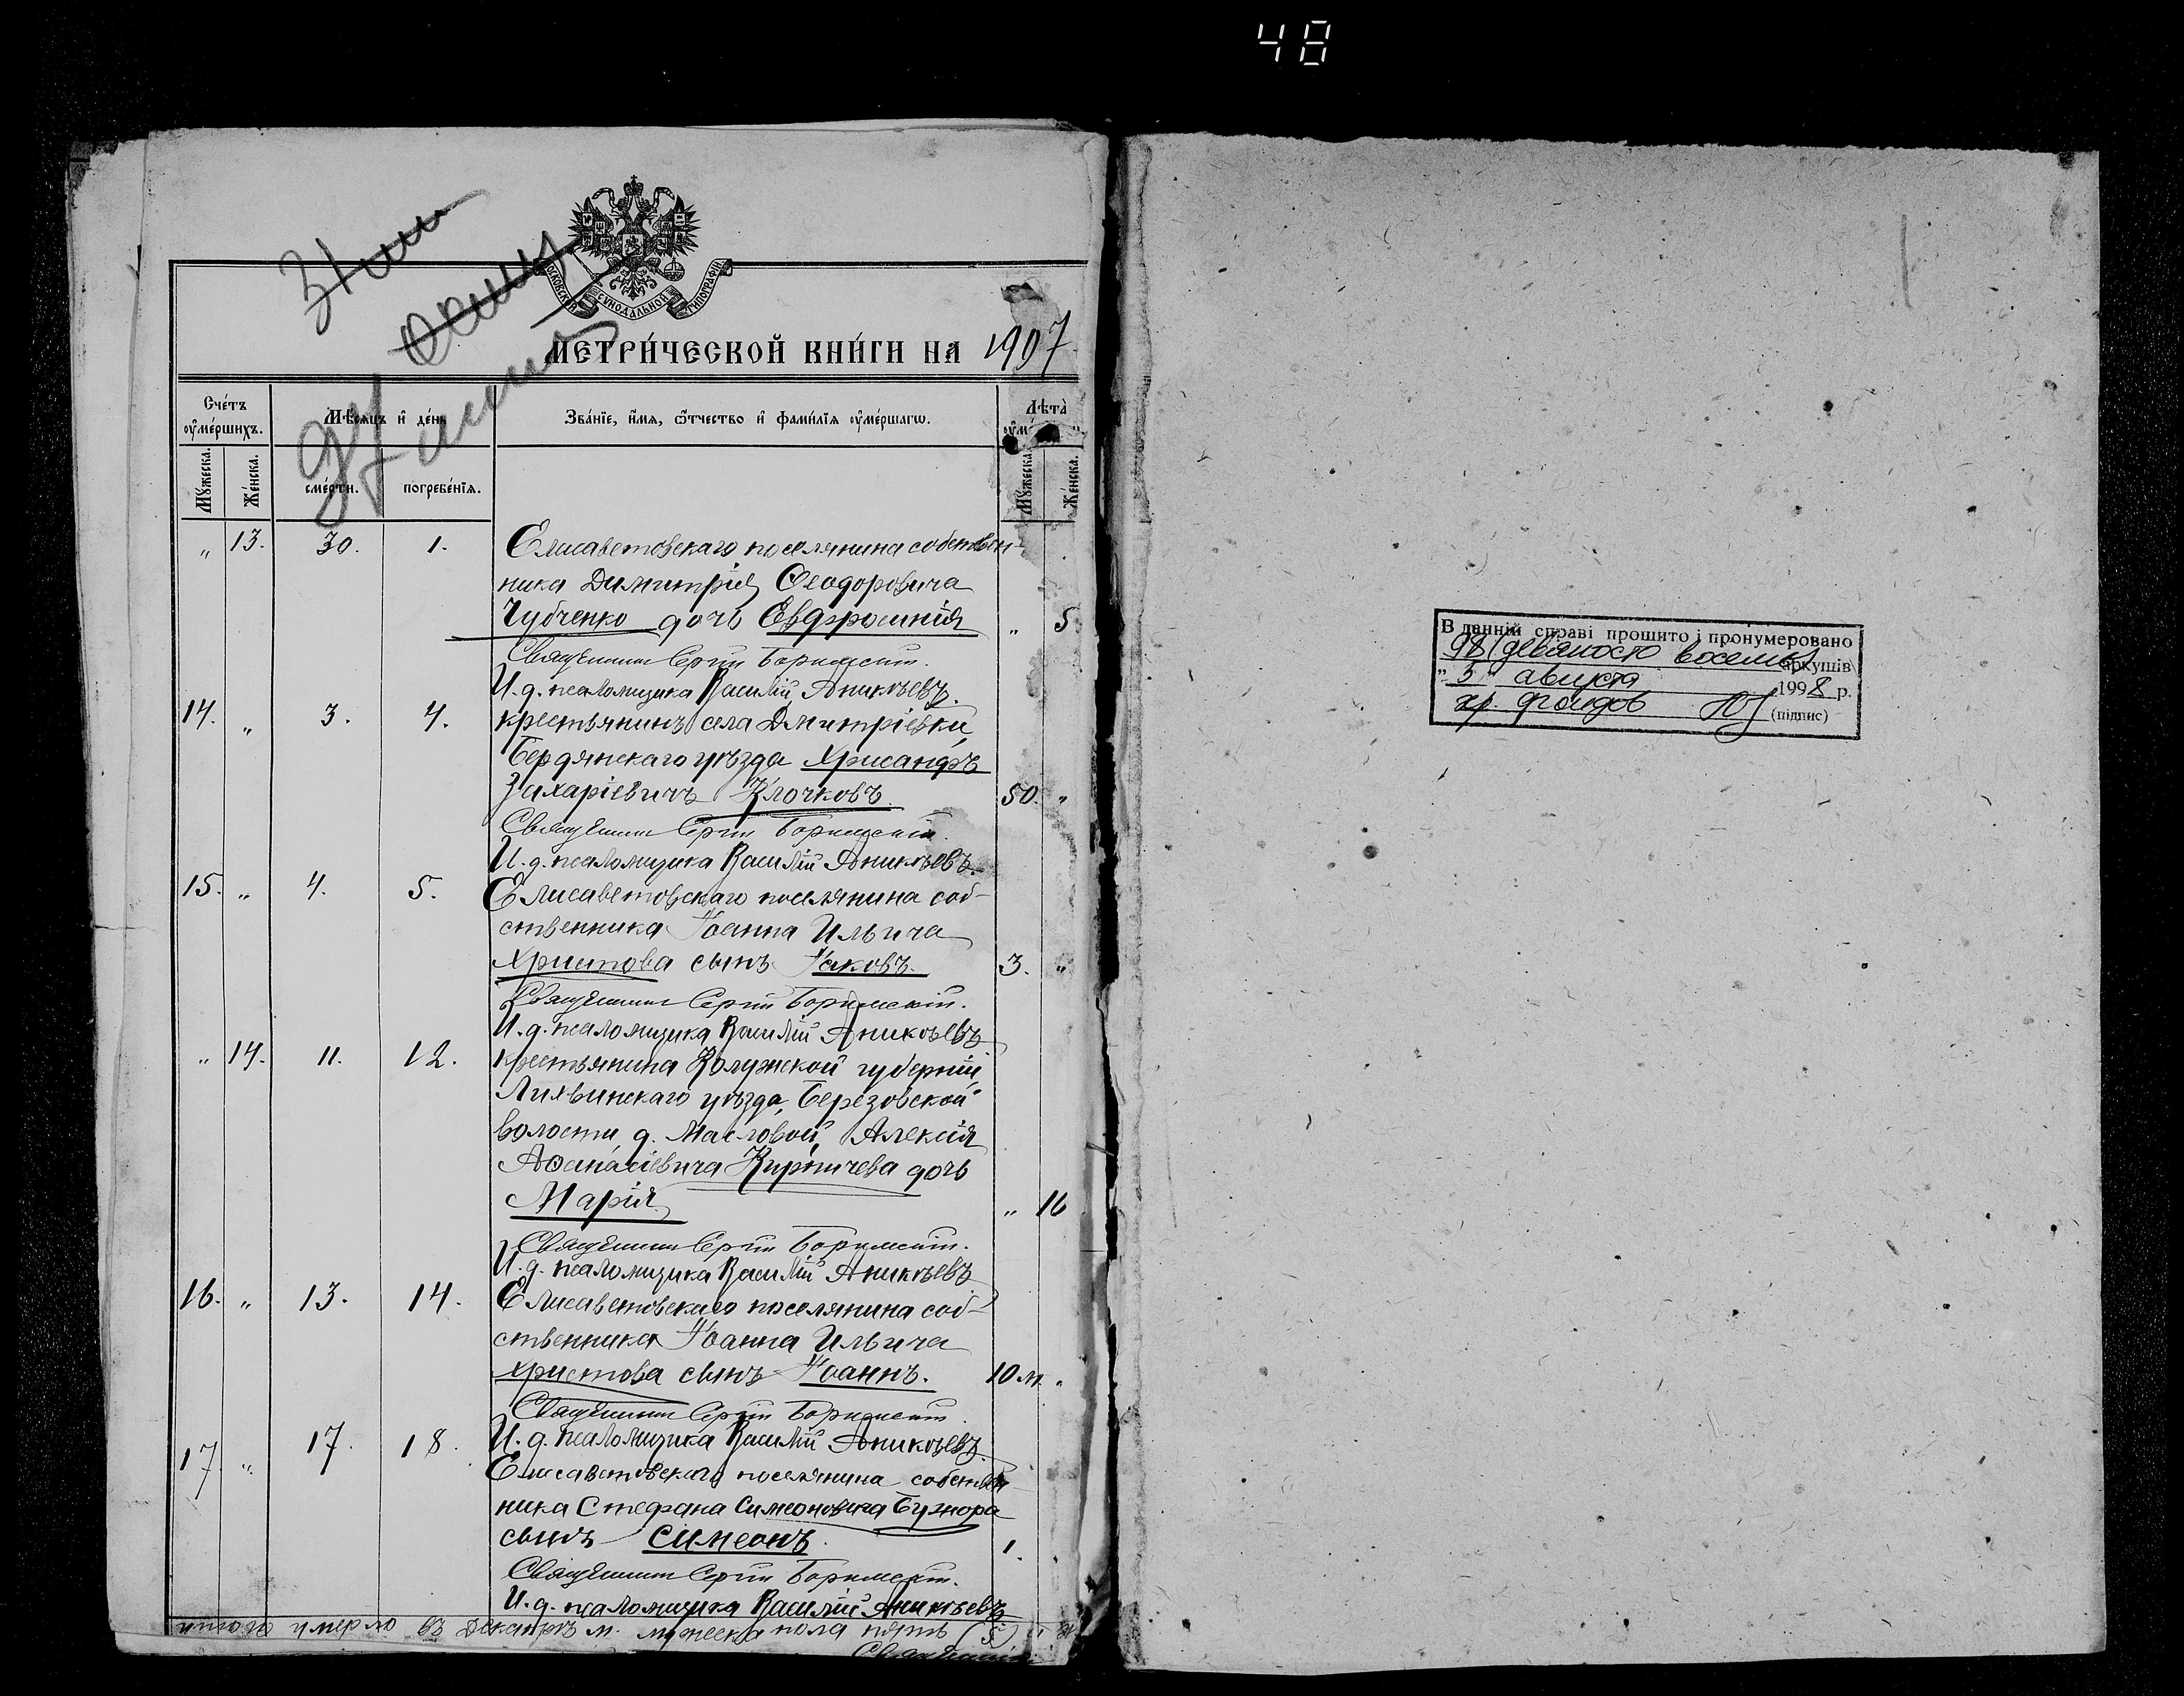 48
МОСКОВСКОЙ СѴНОДАЛЬНОЙ ТИПОГРАФІИ.
МЕТРИ́ЧЕСКОЙ КНИ́ГИ НА 1907
Сче́тъ ᲂу҆ме́ршихъ.
Мѣ́сяцъ и҆ де́нь
Зва́нїе, и҆́мѧ, ѻ҆́тчество и҆ фами́лїѧ ᲂу҆ме́ршагѡ.
Лѣта̀
Мꙋ́жеска.
Же́нска.
сме́рти.
погребе́нїѧ.
Мꙋ́жеска.
Же́нска.
„ 13. 30. 1. Елисаветовскаго поселянина собствен-
ника Димитрія Ѳеодоровича
Чубченко дочь Евфросинія „ 5
Священник Сергій
И. д. псаломщика Василій Аникѣевъ.
14. „ 3. 4. крестьянинъ села Дмитріевки,
Бердянскаго уѣзда Хрисанфъ
Захаріевичъ Клочковъ. 50. „
Священник Сергій
И. д. псаломщика Василій Аникѣевъ.
15. „ 4. 5. Елисаветовскаго поселянина соб-
ственника Іоанна Ильича
Христова сынъ Іаковъ. 3. „
Священник Сергій
И. д. псаломщика Василій Аникѣевъ
„ 14. 11. 12. крестьянина Калужской губерніи,
Лихвинскаго уѣзда, Березовской
волости, д. Масловой, Алексія
Аѳанасіевича Кирпичева дочь
Марія „ 16
Священник Сергій
И. д. псаломщика Василій Аникѣевъ
16. „ 13. 14. Елисаветовскаго поселянина соб-
ственника Іоанна Ильича
Христова сынъ Іоаннъ. 10 м. „
Священник Сергій
И. д. псаломщика Василій Аникѣевъ
17 „ 17. 18. Елисаветовскаго поселянина собствен
ника Стефана Симеоновича Бужора
сынъ Симеонъ. 1.
Священник Сергій
И. д. псаломщика Василій Аникѣевъ
итого умерло въ Декабрѣ м. мужеска пола пять (5)
В данній справі прошито і пронумеровано
98 (девяносто восемь) аркушів
„ 3 " августа 1998 р.
хр. фондов (підпис)